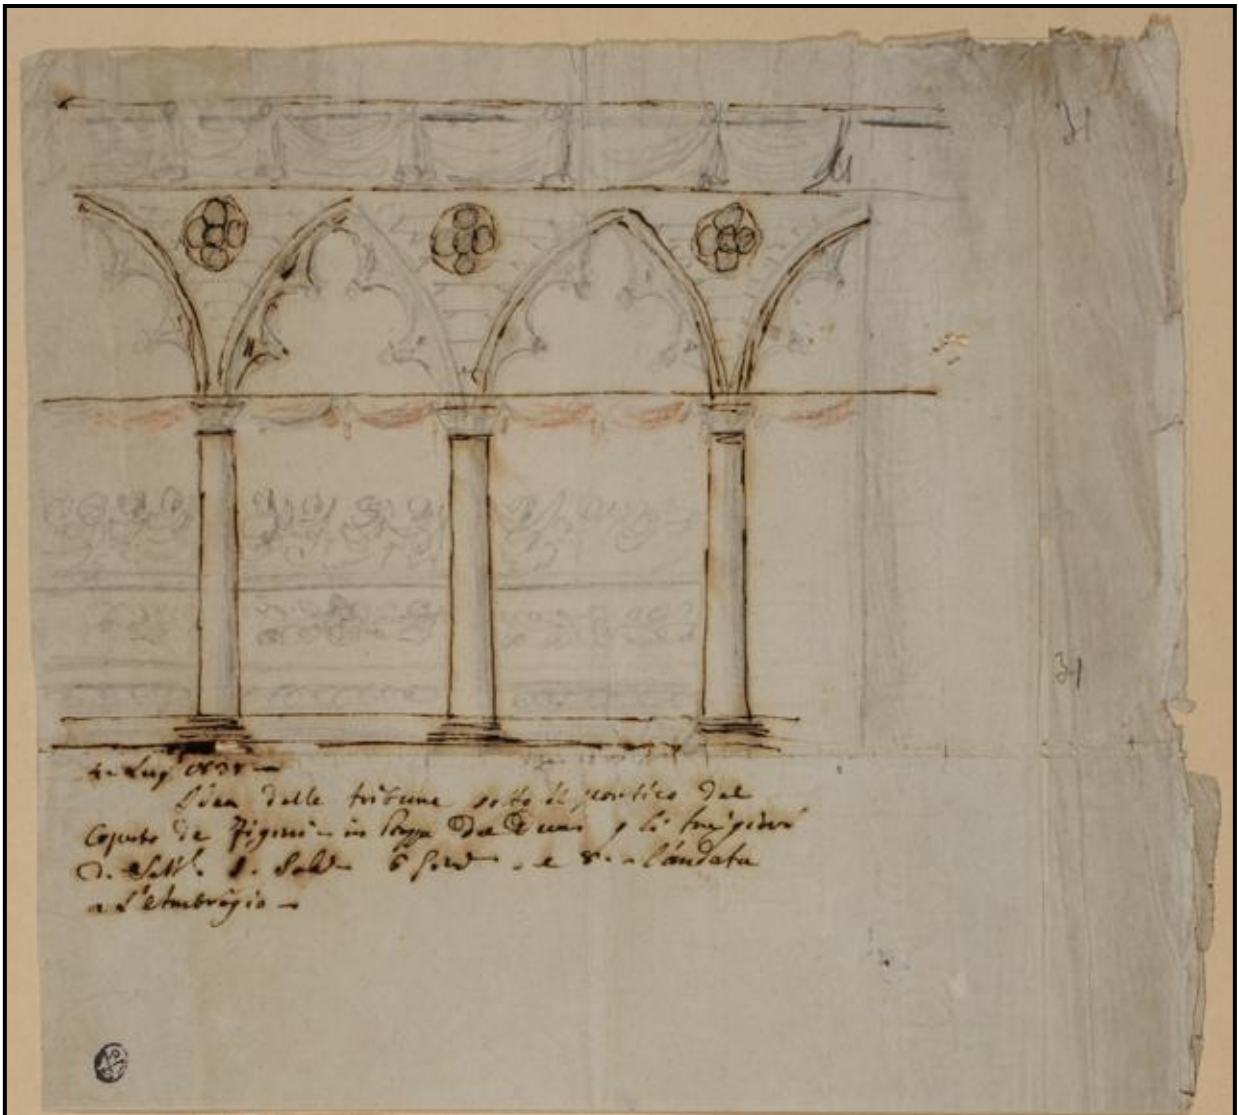 31
31
Lug° 1838 —
Idea delle tribune sotto il portico del
Coperto de Figini in Piazza del Duomo p li tre giorni
di Sett.e 1. Sab. 6 Giov. e 8. l'andata
a S. Ambrogio —